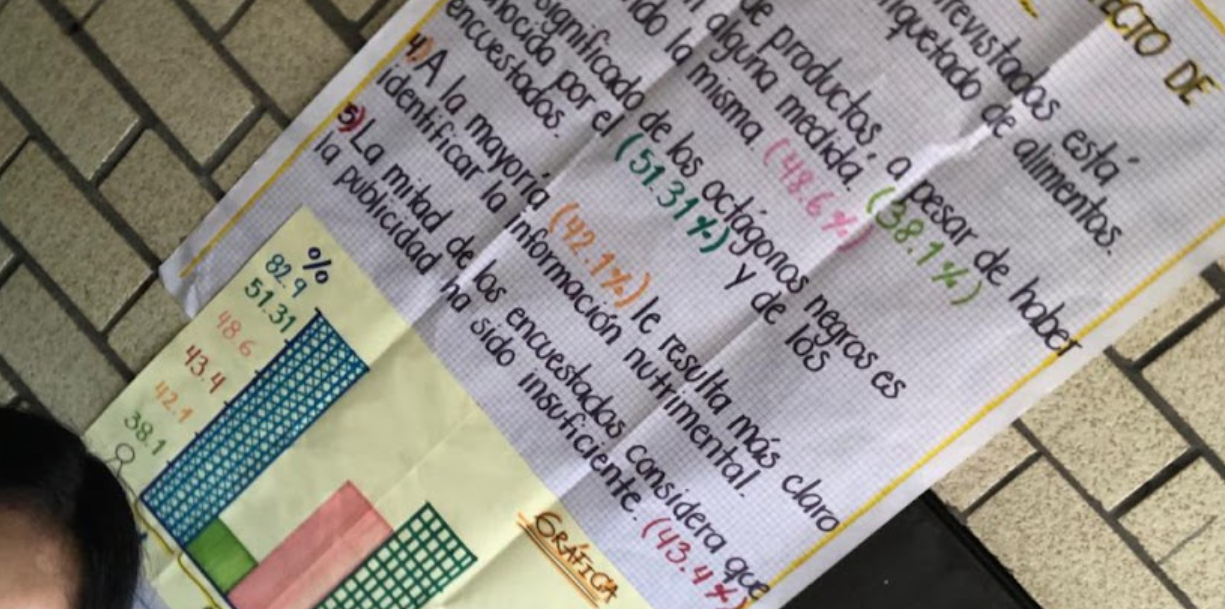 ECTO DE
revistados está
iquetado de alimentos.
de productos, a pesar de haber
alguna medida. (38.1%)
do la misma. (48.6%)
significado de los octágonos negros es
nocida por el (51.31%) y de los
encuestados.
4) A la mayoría (42.1%) le resulta más claro
identificar la información nutrimental.
5) La mitad de los encuestados considera que
la publicidad ha sido insuficiente. (43.4%)
GRÁFICA
%
82.9
51.31
48.6
43.4
42.1
38.1